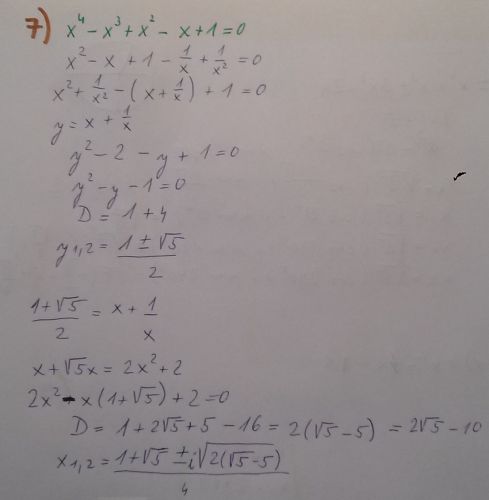 7) x⁴ - x³ + x² - x + 1 = 0
x² - x + 1 - 1/x + 1/x² = 0
x² + 1/x² - (x + 1/x) + 1 = 0
y = x + 1/x
y² - 2 - y + 1 = 0
y² - y - 1 = 0
D = 1 + 4
y₁,₂ = (1 ± √5)/2
(1 + √5)/2 = x + 1/x
x + √5x = 2x² + 2
2x² - x(1 + √5) + 2 = 0
D = 1 + 2√5 + 5 - 16 = 2(√5 - 5) = 2√5 - 10
x₁,₂ = (1 + √5 ± i√(2(√5 - 5)))/4